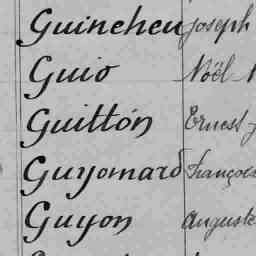 Guineheu Joseph
Guio Noël
Guitton Ernest
Guyomard François
Guyon Auguste